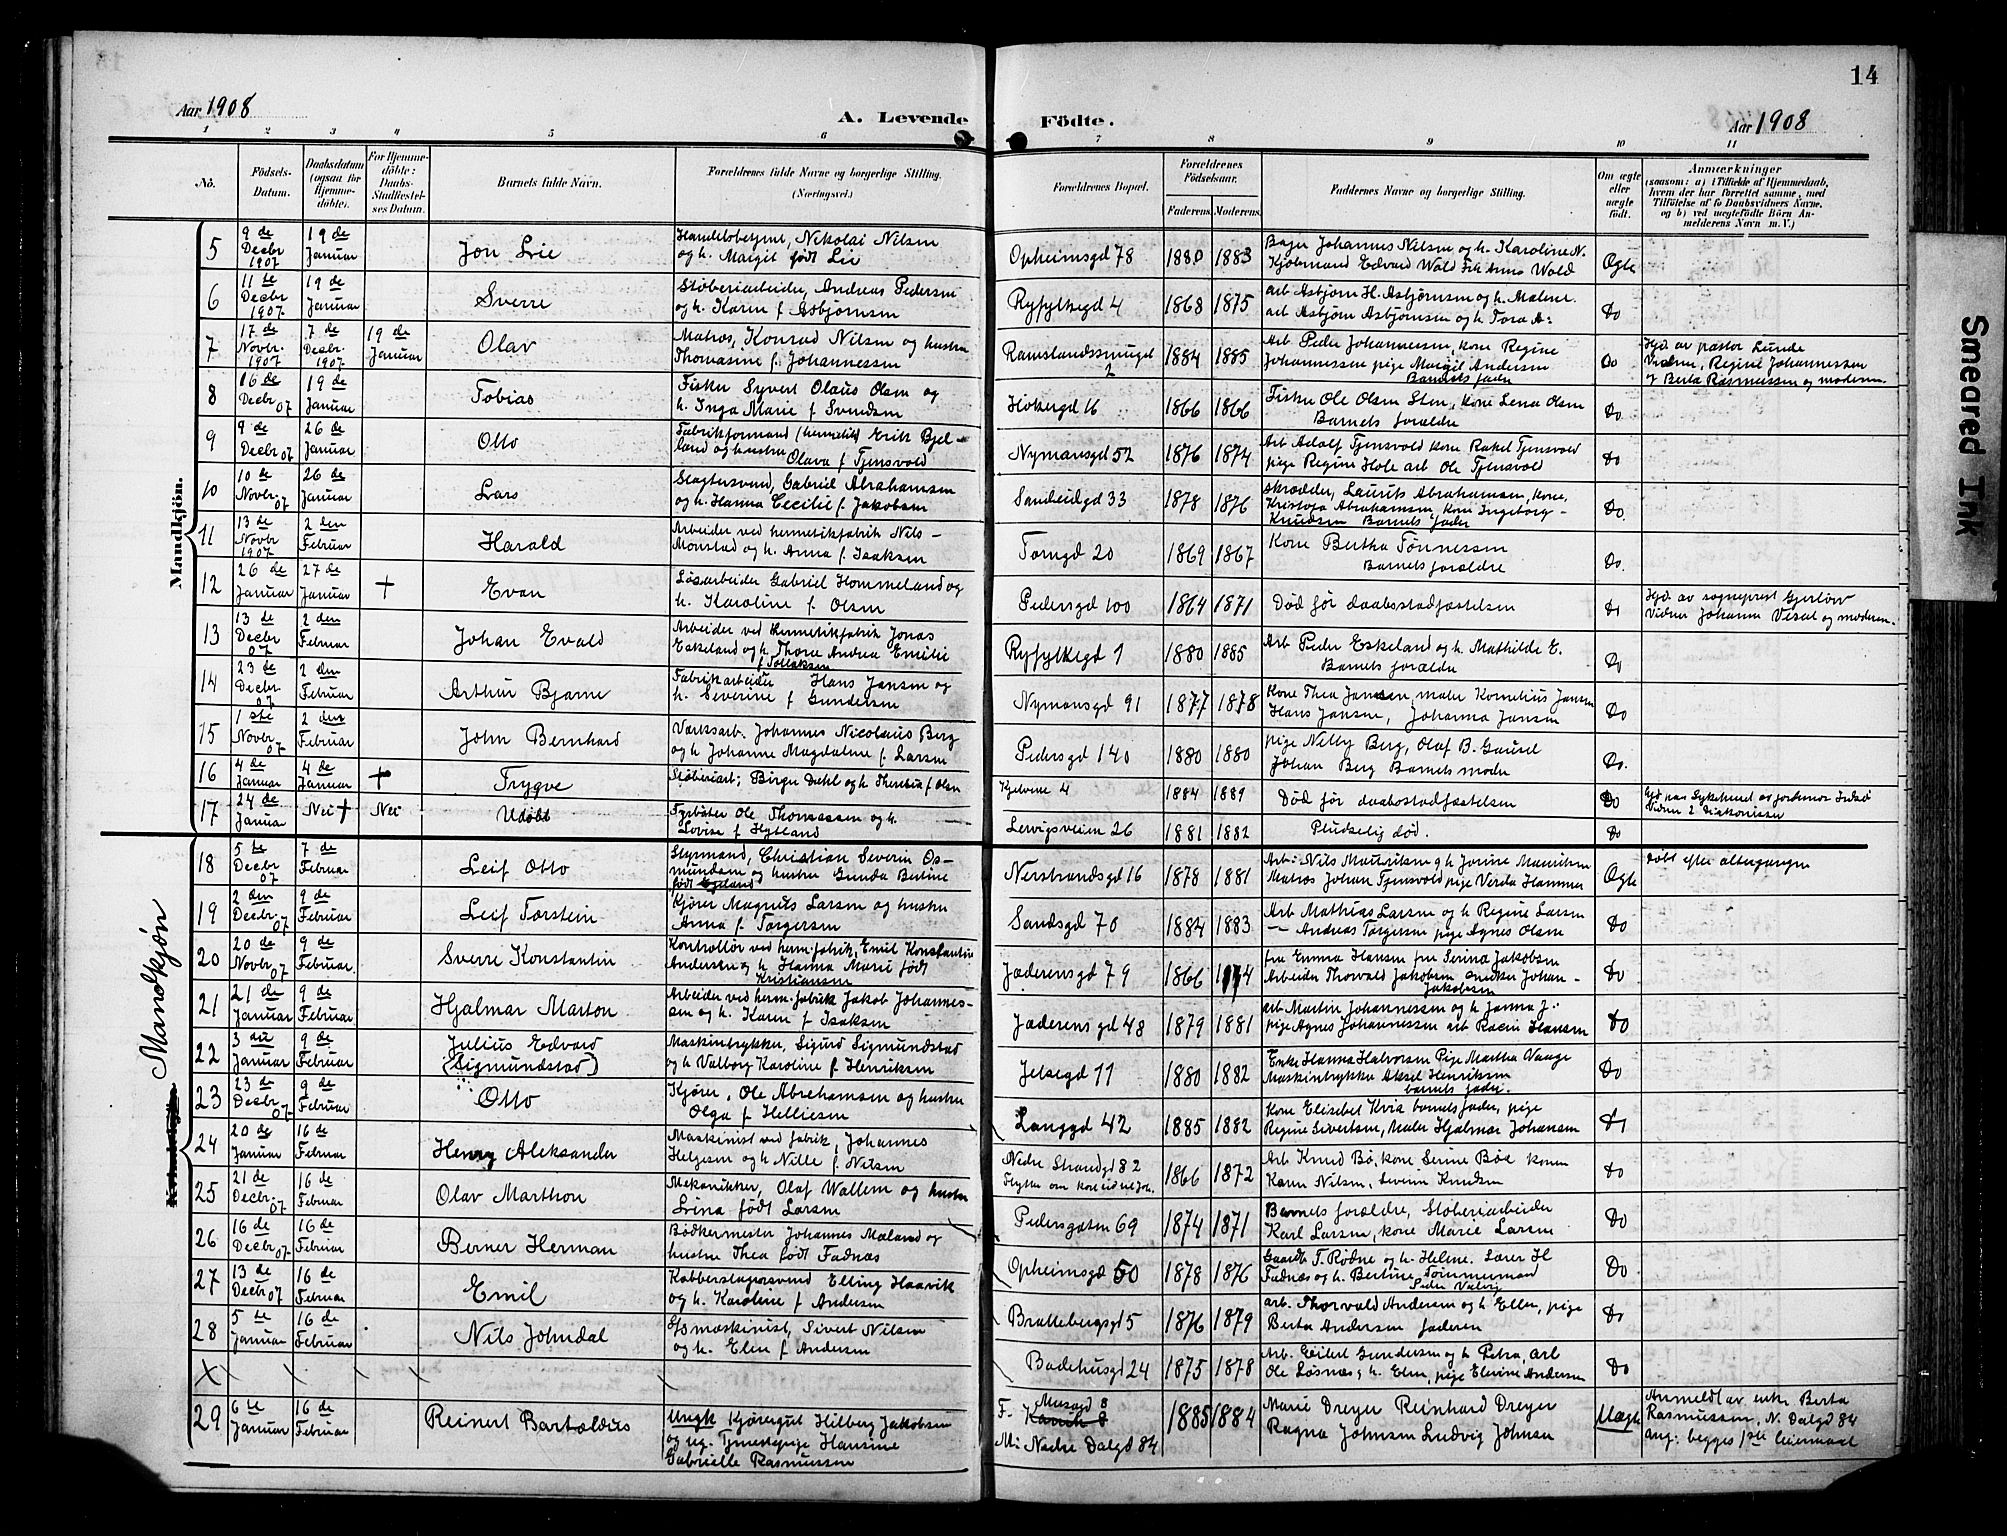 14
Aar 1908
A. Levende
Födte.
Aar 1908
1 2 3 4 5 6 7 8 9 10 11
No.
Födsels-Datum.
Daabsdatum (ogsaa for Hjemme-döbte).
For Hjemme-döbte: Daabs-Stadfæstel-ses Datum.
Barnets fulde Navn.
Forældrenes fulde Navne og borgerlige Stilling. (Næringsvei.)
Forældrenes Bopæl.
Forældrenes Födselsaar.
Faderens. Moderens.
Faddernes Navne og borgerlige Stilling.
Om ægte eller uægte födt.
Anmærkninger
(saasom: a) i Tilfælde af Hjemmedaab, hvem der har forrettet samme, med Tilföielse af to Daabsvidners Navne, og b) ved uægtefödte Börn Anmelderens Navn m. V.)
Mandkjön.
5 9de Decbr 1907 19de Januar Jon Lie Handelsbetjent, Nikolai Nilsen og h. Margit født Lie Opheimsgd 78 1880 1883 Bager Johannes Nilsen og h. Karoline N. Ægte
6 11te Decbr 1907 19de Januar Sverre Støberiarbeider, Andreas Pedersen og h. Karen f. Asbjørnsen Ryfylkegd 4 1868 1875 arb Asbjørn H. Asbjørnsen og h. Malene. arb Asbjørn Asbjørnsen og h Tora A: Do
7 17de Novbr. 1907 7de Decbr. 1907 19de Januar Olav Matros, Konrad Nilsen og hustru Thomasine f. Johannessen Ramslandssmuget 2 1884 1885 Arb Peder Johannessen, kone Regine Johannessen pige Margit Andersen Barnets fader Do Hjd av pastor Lunde Vidner, Regine Johannessen og Berta Rasmussen og moderen.
8 16de Decbr 07 19de Januar Tobias Fisker Syvert Olaus Olsen og h. Inga Marie f Svendsen Hökergd 16 1866 1866 Fisker Ole Olsen Sten, kone Lena Olsen Barnets forældre Do
9 9de Decbr 07 26de Januar Otto Fabrikformand (hermetik) Erik Bjelland og hustru Olava f Tjensvold Nymansgd 52 1876 1874 Arb Adolf Tjensvold kone Rakel Tjensvold pige Regine Hole arb Ole Tjensvold Do
10 10de Novbr. 07 26de Januar Lars Slagtersvend, Gabriel Abrahamsen og h. Hanna Cecilie f. Jakobsen Sandeidgd 33 1878 1876 Skrædder, Laurits Abrahamsen, kone, Kristofa Abrahamsen, kone Ingeborg Knudsen Barnets fader Do.
11 13de Novbr 1907 2den Februar Harald Arbeider ved hermetikfabrik Nils Monstad og h. Anna f. Isaksen Torngd 20 1869 1867 Kone Bertha Tönnessen Barnets forældre Do.
12 26de Januar 27de Januar + Evan Løsarbeider Gabriel Hommeland og h. Karoline f. Olsen Pedersgd 100 1864 1871 Død før daabsstadfæstelsen Do Hjd. av sogneprest Gjerløw Vidner Johanna Vestal og moderen.
13 13de Decbr 07 2den Februar Johan Evald Arbeider ved hermetikfabrik Jonas Eskeland og h. Thora Andrea Emilie f Tollaksen Ryfylkegd 1 1880 1885 Arb Peder Eskeland og h. Mathilde E. Barnets forældre Do
14 23de Decbr. 07 2den Februar Arthur Bjarne Fabrikarbeider Hans Jansen og h. Severine f Gundersen Nymansgd 91 1877 1878 Kone Thea Jansen, maler Kornelius Jansen Hans Jansen, Johanna Jansen Do
15 1ste Novbr. 07 2den Februar John Bernhard Værksarb. Johannes Nicolaus Berg og h Johanne Magdalene f. Larsen Pedersgd 140 1880 1880 pige Nelly Berg, Olaf B. Gausel Johan Berg Barnets moder Do.
16 4de Januar 4de Januar + Trygve Støberiarb; Birger Dahl og h. Theresia f Olsen Kjelvene 4 1884 1889 Død før daabsstadfæstelsen Do Hjd paa Sykehuset av jordemor Indsø Vidner 2 Diakonisser
17 24de Januar Nei + Nei Udöbt Fyrbøter Ole Thomassen og h. Lovise f Hytland Lervigsveien 26 1881 1882 Pludselig død. Do
Kvindekjön Mandkjøn
18 5te Decbr 07 7de Februar Leif Otto Styrmand, Christian Severin Osmundsen og hustru Gunda Bertine født Egeland Nerstrandsgd 16 1878 1881 Arb: Nils Mauritsen og h Jorine Mauritsen Matros Johan Tjensvold pige Verda Hammer Ægte Døbt efter altergangen
19 2den Decbr. 07 9de Februar Leif Torstein Kjører Magnus Larsen og hustru Anna f. Torgersen Sandsgd 70 1884 1883 Arb Mathias Larsen og h Regine Larsen — Andreas Torgersen pige Agnes Olsen Do
20 20de Novbr 07 9de Februar. Sverre Konstantin Kontrollør ved herm. fabrik, Emil Konstantin Andersen og h. Hanna Marie født Kristiansen Jæderensgd 79 1866 1874 fru Emma Hansen fru Serina Jakobsen Arbeider Thorvald Jakobsen snedker Johan Jakobsen Do
21 21de Januar 9de Februar Hjalmar Marton Arbeider ved herm. fabrik Jakob Johannessen og h. Karen f Isaksen Jæderensgd 48 1879 1881 arb Martin Johannessen og h Janna J.: pige Agnes Johannessen arb Rasm Hansen Do
22 3die Januar 9de Februar Julius Edvard (Sigmundstad) Maskintrykker, Sigurd Sigmundstad og h Valborg Karoline f Henriksen Jelsegd 11 1880 1882 Enke Hanna Halvorsen Pige Martha Vaage Maskintrykker Aksel Henriksen barnets fader. Do
23 23de Decbr 07 9de Februar Otto Kjører, Ole Abrahamsen og hustru Olga f Helliesen Langgd 42 1885 1882 Kone Elisebet Kvia barnets fader, pige Regine Sivertsen, Maler Hjalmar Johansen Do
24 20de Januar 16de Februar Henry Aleksander Maskinist ved fabrik, Johannes Helgesen og h Nille f. Nilsen Nedre Strandgd 82 1866 1872 Arb Knud Bø, kone Serine Bøe konen Karen Nilsen, Severin Knudsen Do
25 21de Decbr. 07 16de Februar Olav Marthon Mekanikker, Olaf Wallem og hustru Lrina født Larsen Pedersgaten 69 1874 1871 Barnets forældre, Støberiarbeider Karl Larsen, kone Marie Larsen Do
26 16de Decbr. 07 16de Februar Berner Herman Bødkermester Johannes Mæland og hustru Thea født Fadnæs Opheimsgd 50 1878 1876 Gaardb T. Rødne og h. Helene. Lærer H Fadnæs og h. Bertine Tömmermand Peder Valvig Do
27 13de Decbr 07 16de Februar Emil Kobberslagersvend Elling Haavik og h. Karoline f Andersen Brattebergsgd 5 1876 1879 arb. Thorvald Andersen og h Ellen, pige Berta Andersen faderen Do
28 5te Januar 16de Februar Nils Johndal Ssmaskinist, Sivert Nilsen og h. Elen f Andersen Badehusgd 24 1875 1878 Arb. Eilert Gundersen og h Petra, arb Ole Løsnæs, h. Elen, pige Elvine Andersen Do
29 6te Januar 16de Februar Reinert Bartoldus Ungk Kjøregut Hilberg Jakobsen og ug. Tjenestepige Hansine Gabrielle Rasmussen F. Musegd 8 M: Nedre Dalgd 84 1885 1884 Marie Dreyer Reinhard Dreyer Ragna Johnsen Ludvig Johnsen Uægte Anmeldt av enke Berta Rasmussen, N. Dalgd 84 ang: begges 1ste leiermaal
Smeared Ink